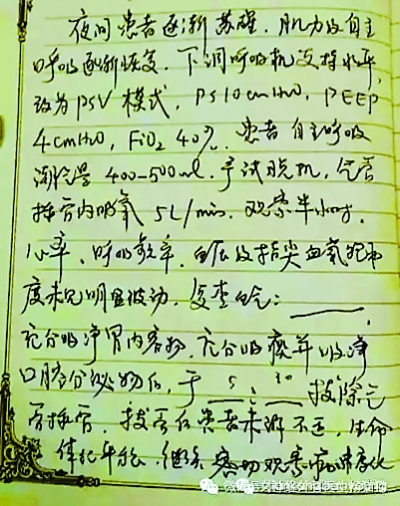 夜间患者逐渐苏醒,肌力及自主
呼吸逐渐恢复。下调呼吸机支持水平,
改为PSV模式,PS10cmH2O,PEEP
4cmH2O,FiO2 40%,患者自主呼吸
潮气量400-500ml.予试脱机,气管
插管内吸氧5L/min.观察半小时,
心率、呼吸频率、血压及指尖血氧饱和
度未见明显波动,复查血气:____,
充分吸净胃内容物,充分吸痰并吸净
口腔分泌物后,于 5:30 拔除气
管插管,拔管后患者未诉不适,生命
体征平稳,继续密切观察病情变化